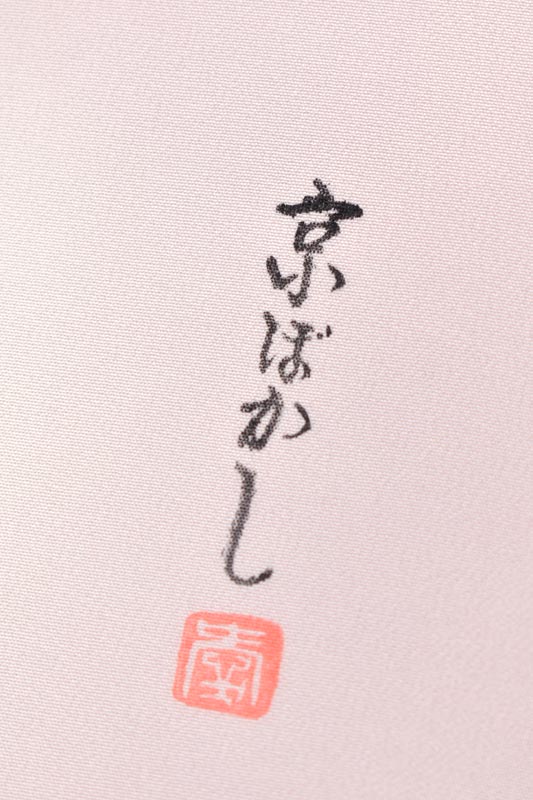 京ぼかし